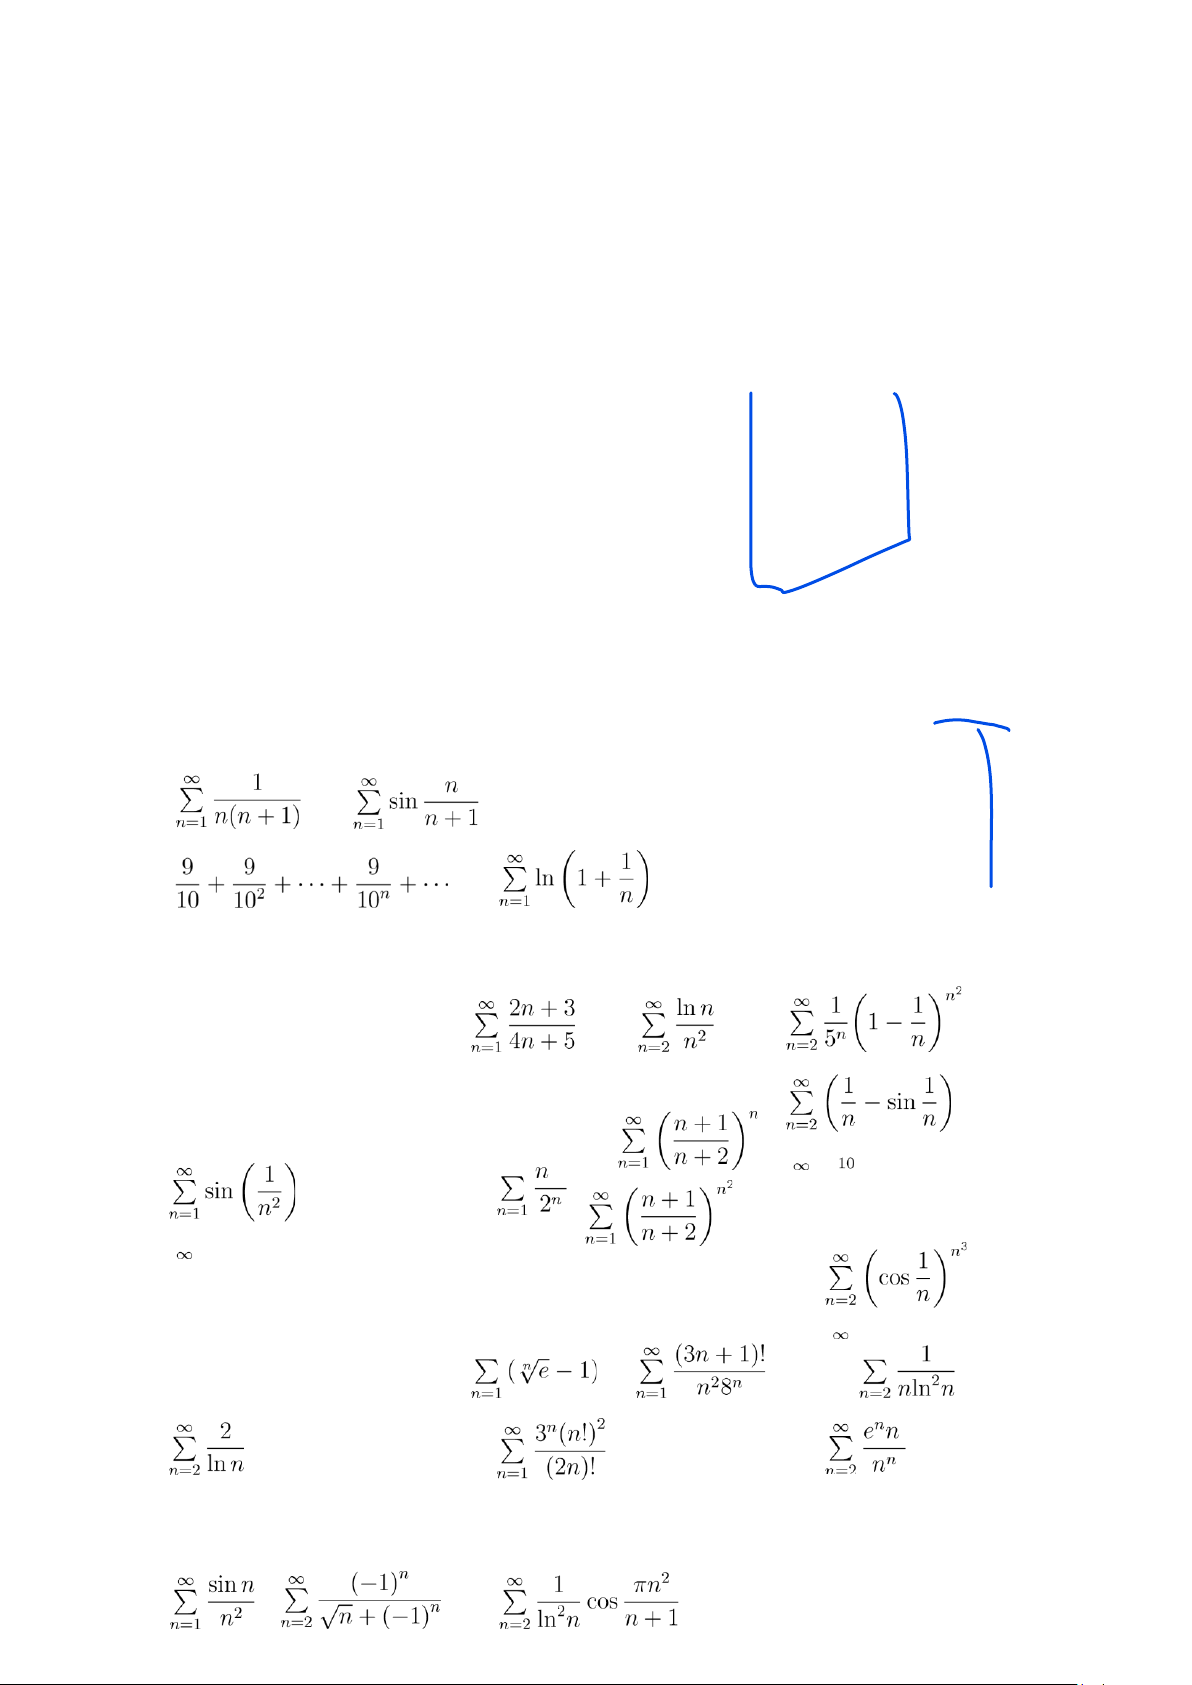 ∑_{n=1}^{∞} 1/(n(n + 1))   ∑_{n=1}^{∞} sin n/(n + 1)
9/10 + 9/10² + ··· + 9/10ⁿ + ···   ∑_{n=1}^{∞} ln(1 + 1/n)
∑_{n=1}^{∞} (2n + 3)/(4n + 5)   ∑_{n=2}^{∞} ln n/n²   ∑_{n=2}^{∞} 1/5ⁿ (1 − 1/n)^{n²}
∑_{n=2}^{∞} (1/n − sin 1/n)
∑_{n=1}^{∞} ((n + 1)/(n + 2))^n
∞   10
∑_{n=1}^{∞} sin(1/n²)   ∑_{n=1} n/2ⁿ   ∑_{n=1}^{∞} ((n + 1)/(n + 2))^{n²}
∞
∑_{n=2}^{∞} (cos 1/n)^{n³}
∞
∑_{n=1} (ⁿ√e − 1)   ∑_{n=1}^{∞} (3n + 1)!/(n²8ⁿ)   ∑_{n=2} 1/(n ln²n)
∑_{n=2}^{∞} 2/ln n   ∑_{n=1}^{∞} 3ⁿ(n!)²/(2n)!   ∑_{n=2}^{∞} eⁿn/nⁿ
∑_{n=1}^{∞} sin n/n²   ∑_{n=2}^{∞} (−1)ⁿ/(√n + (−1)ⁿ)   ∑_{n=2}^{∞} 1/ln²n cos πn²/(n + 1)